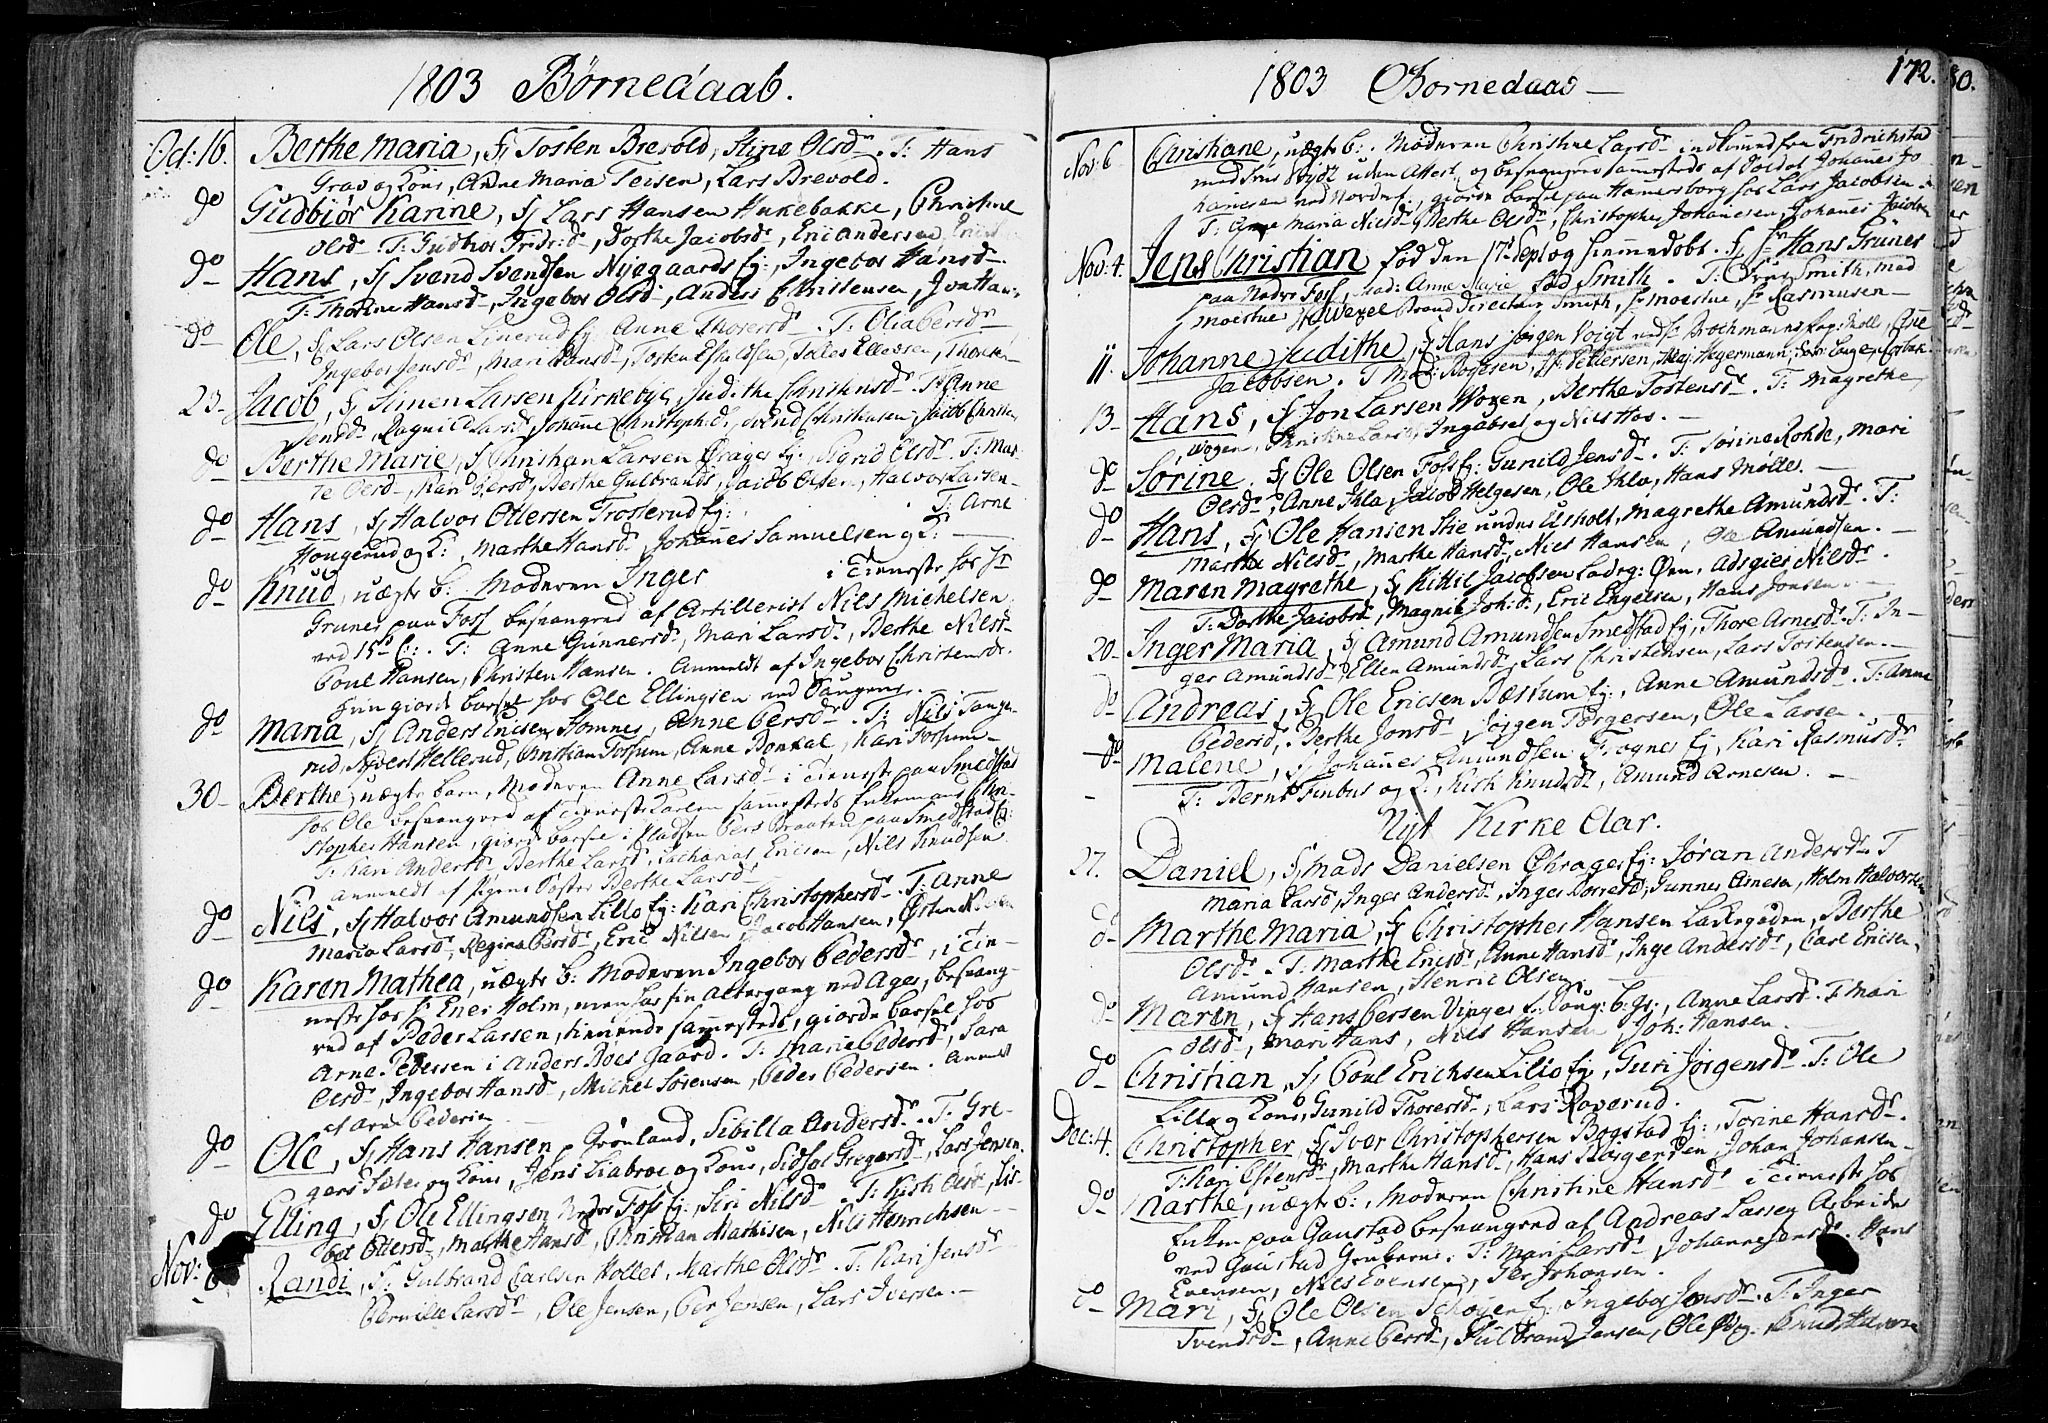 1803 Børnedaab.
Oct: 16. Berthe Maria, F Tosten Brevold, Stine Olsd. T: Hans
Grav og Kone, Anne Maria Teisen, Lars Brevold.
do Gudbiør Karine, F Lars Hansen Hukebakke, Christine
Olsd. T: Gudbior Fridr:d, Dorthe Jacobsd, Eric Andersen
do Hans, F Svend Svendsen Nÿegaards Ej:, Ingebor Hansd.
T: Thorine Hansd, Ingebor Olsd, Anders Christensen,
do Ole, F Lars Olsen Ej: Anne Thorersd. T: Olia Persd
Ingebor Jensd, Mari Hansd, Tosten
23- Jacob, F Simen Larsen Kirkebye, Judithe Christensd. T: Anne
Jensd, Ragnild Larsd, Johanne Christoph:d, Svend Christensen, Jacob Christen
do Berthe Marie, F Christian Larsen Ej:, Sigrid Olsd. T: Mar-
te Olsd, Kari Persd, Berthe Gulbrands, Jacob Olsen, Halvor Larsen-
do Hans, F Halvor Ottersen Trosterud Ej: T: Arne
Hougerud og K:, Marthe Hansd, Johannes Samuelsen og K:
do Knud, uægte b: Moderen Inger i Tieneste hos Hr
Gruner paa Foss besvangred af Artillerist Niels Michelsen
ved 15d C:. T: Anne Gunnersd, Mari Larsd, Berthe Nilsd-
Poul Hansen, Christen Hansen. Anmeldt af Ingebor Christensd.
hun giorde barsel hos Ole Ellingsen ved Saugene.
do Maria, F Anders Ericsen Homnes, Anne Persd. T: Nils Tange-
rud, Hellerud, Christian Fossum, Anne Bonkal, Kari Fossum-
30- Berthe, uægte barn, Moderen Anne Larsd i Tieneste paa Smedstad
hos Ole besvangred af Tienestekarlen sammesteds Enkemand Chri-
stopher Hansen, giorde barsel i Pladsen Pers Braaten paa Smedstad Ej:
T: Kari Andersd, Berthe Larsd, Zacharias Ericsen, Nils Knudsen
Anmeldt af Pigens Søster Berthe Larsd
do Nils, F Halvor Amundsen Lillo Ej: Kari Christophersd. T: Anne
Maria Larsd, Regina Persd, Eric Nilsen, Jacob Hansen, Østen
do Karen Mathea, uægte b: Moderen Ingebor Pedersd, i Tie-
neste hos Hr Ener Holm, men har sin Altergang ved Ager, besvang-
red af Peder Larsen, tienende sammesteds, giorde barsel hos
Arne Pedersen i Anders Roes Gaard. T: Marie Pedersd, Sara
Olsd, Ingebor Hansd, Michel Sørensen, Peder Pedersen. Anmeldt
af Arne Pedersen
do Ole, F Hans Hansen Grønland, Sibilla Andersd. T: Gre-
gers Sæter og Kone, Jens Liabroe og Kone, Sidsel Gregersd, Lars Jensen
do Elling, F Ole Ellingsen Nedre Foss Ej: Siri Nilsd. T: Kisti Olsd, Lis-
bet Ottersd, Marthe Hansd, Christian Mathisen, Nils Henrichsen-
Nov: 6 Randi, F: Gulbrand Carlsen Holter, Marthe Olsd. T: Kari Jensd
Pernille Larsd, Ole Jensen, Per Jensen, Lars Iversen.-
1803 Børnedaab 172.
Nov: 6 Christiane, uægte b: Moderen Christine Larsd indkommed fra Fridrichstad
uden Attest, og besvangred sammesteds af Soldat Johanes Jo
hanesen ved giorde barsel paa Hamersborg hos Lars Jacobsen.
T: Anne Maria Nielsd, Berthe Olsd, Christopher Johanesen, Johannes Jacobsen
Nov: 4. Jens Christian fød den 17d Sept og hiemmedøbt. F Hr Hans Gruner
paa Nedre Foss, Mad: Anne Marie fød Smith. T: Smith, Mad
Moestue, Wexel, Directeur Smith, Hr Moestue, Hr Rasmusen-
11. Johanne Judithe, F Hans Jørgen Voigt
Jacobsen. T M: Rogesen, Pettersen, Maj: Hegermann,
13- Hans, F Jon Larsen Wogen, Berthe Tostensd. T: Magrethe
Wogen, Christine Larsd, Ingebret og Nils Hos.-
do Sorine. F Ole Olsen Foss Ej: Gunild Jensd. T: Sorine Rohde, Mari
Olsd, Anne Skla, Jacob Helgesen, Ole Skla, Hans Møller.
do Hans, F Ole Hansen Stie under Ulsholt, Magrethe Amundsd. T:
Marthe Nilsd, Marthe Hansd, Niels Hansen, Ole Amundsen.
do Maren Magrethe, F Kittil Jacobsen Ladeg: Øen, Adsgier Nilsd.
T: Dorthe Jacobsd, Magnil Joh:d, Eric Engelsen, Hans Jonsen.-
20- Inger Maria, F Amund Amundsen Smedstad Ej, Thore Arnesd. T: In-
ger Amundsd, Ellen Amundsd, Lars Christensen, Lars Tostensen.-
do Andreas, F Ole Ericsen Bæstum Ej:, Anne Amundsd. T: Anne
Pedersd, Berthe Jonsd, Jørgen Torgersen, Ole Larsen.
do Malene, F Johannes Amundsen Frogner Ej, Kari Rasmusd.
T: Bernt Finbus og K:, Kisti Knudsd, Amund Arnesen.-
Nyt Kirke Aar.
27. Daniel, F Mads Danielsen Ej: Jøran Andersd. T
Maria Larsd, Inger Andersd, Inger Torersd, Gunner Arnesen, Holm Halvorsen
do Marthe Maria, F Christopher Hansen Lakkegaden, Berthe
Olsd. T: Marthe Ericsd, Anne Hansd, Inge Andersd, Carl Ericsen,
Amund Hansen, Henric Olsen.
do Maren, F Hans Persen Anne Larsd. T Mari
Olsd, Mari Hans, Nils Hansen, Joh: Hansen.-
do Christian, F Poul Erichsen Lillo Ej, Guri Jørgensd. T: Ole
Lillo og Kone, Gunild Thorersd, Lars Roverud.
Dec: 4. Christopher, F Iver Christophersen Bogstad Ej:, Torine Hansd.
T: Kari Estensd, Marthe Hansd, Hans Børgersen, Johan Johansen-
do Marthe, uægte b:, Moderen Christine Hansd i Tieneste hos
Enken paa Gaustad besvangred af Andreas Larsen Arbeider
ved Gaustad Gruberne. T: Mari Larsd, Johanne Jensd, Hans
Evensen, Nils Evensen, Per Johansen.
do Mari, F Ole Olsen Schøyen Ej: Ingebor Jensd. T: Inger
Svendsd, Anne Persd, Gulbrand Jensen, Ole